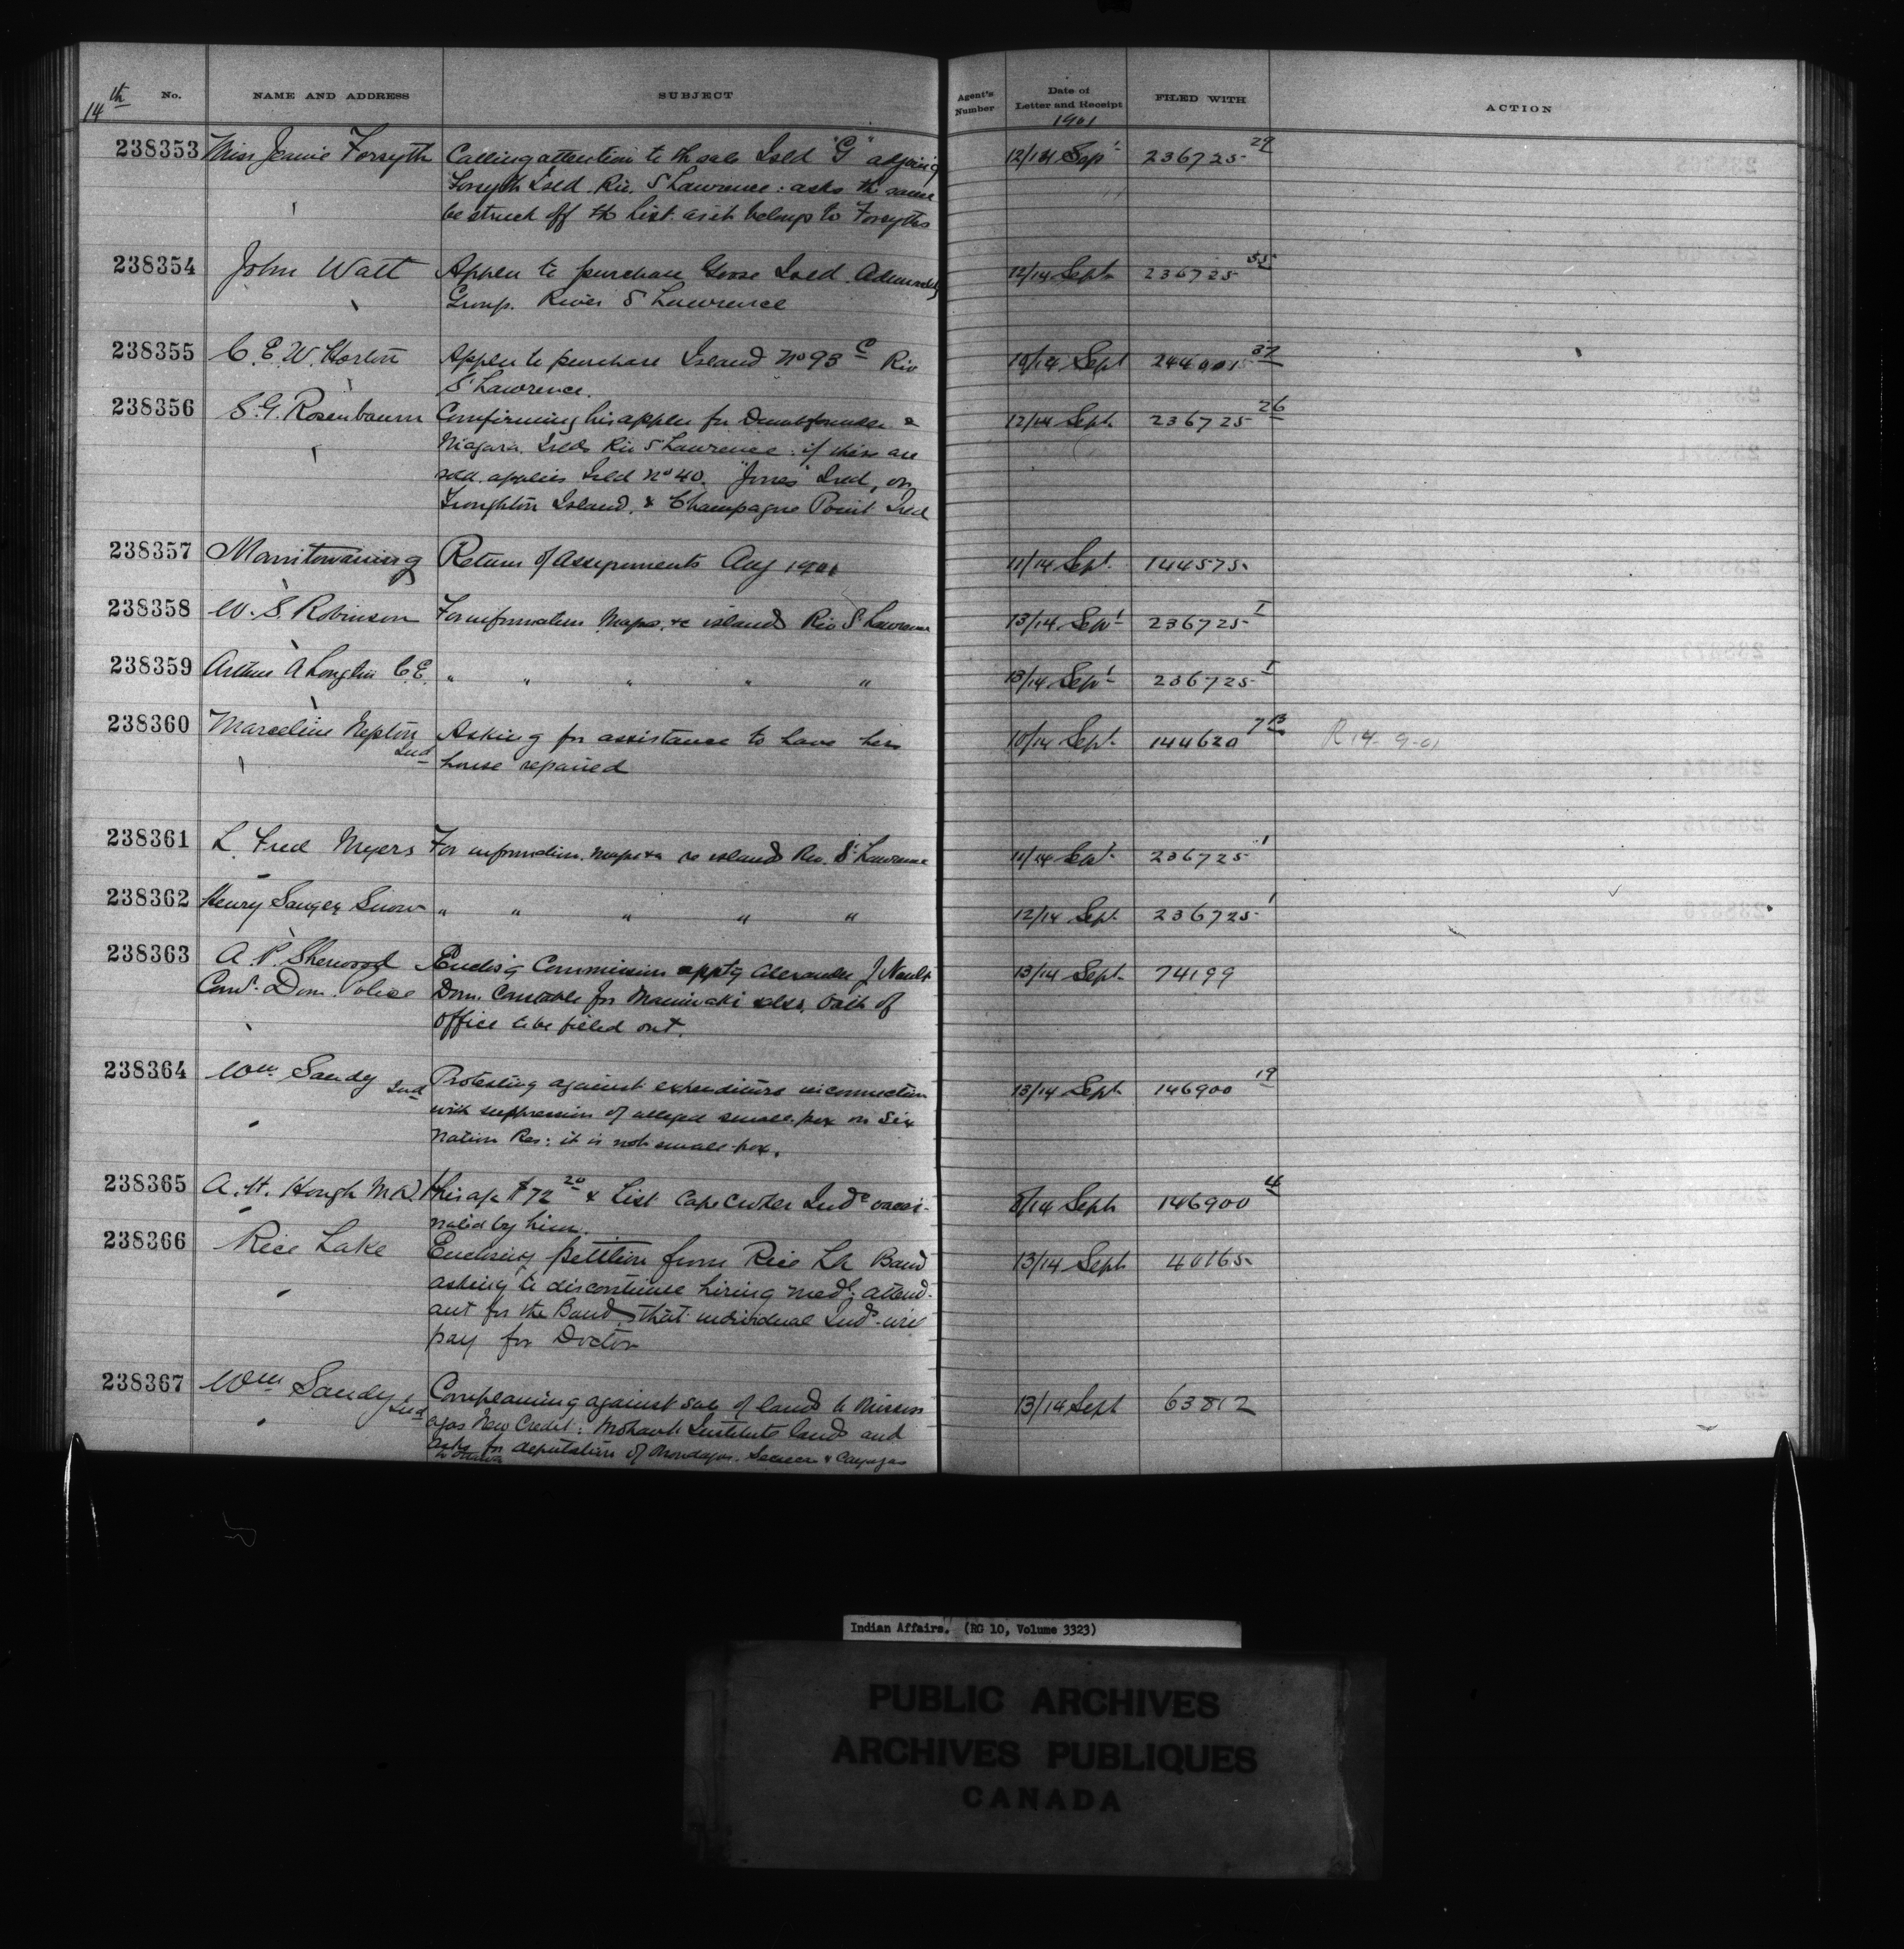 14th No. NAME AND ADDRESS SUBJECT Agent's Number Date of Letter and Receipt FILED WITH ACTION
1901
238353 Miss Jeanie Forsyth Calling attention to th sale Isld "G" adjoing 12/14 Sept 236725 29
Forsyth Isld. Riv. St Lawrence: asks th same
be struck off the list as it belongs to Forsyths
238354 John Watt Applen to purchase Goose Isld. Admiralty 12/14 Sept 236725 55
Group. River St Lawrence
238355 C. E. W. Horton Applen to purchase Island No 93 C Riv 10/14 Sept 244001 37
St Lawrence.
238356 S. G. Rosenbaum Confirming his applen for Dumbfounder & 12/14 Sept. 236725 26
Niagara Islds Riv St Lawrence: if these are
sold. applies Isld No 40. "Jones" Isld, or
Isld. & Champagne Point Isld
238357 Manitowaning Return of Assignments Aug 1901 11/14 Sept. 144575.
238358 W. S. Robinson For information Maps, &c islands Riv St Lawrence 13/14 Sept 236725 1
238359 Arthur A Loughlin C.E. " " " " " 13/14 Sept 236725 1
238360 Marceline Nepton Asking for assistance to have her 10/14 Sept. 144620 7 R 14-9-01
Ind house repaired
238361 L. Fred Myers For information. maps &c re islands Riv. St Lawrence 11/14 Sept. 236725 1
238362 Henry Sanger Snow " " " " " 12/14 Sept 236725 1
238363 A. P. Sherwood Enclos'g Commission appt'g Alexander J Nault 13/14 Sept. 74199
Dom. Police Dom. Constable for Maniwaki also. Oath of
office to be filled out.
238364 Wm. Sandy Ind Protesting against expenditure in connection 13/14 Sept 146900 19
with suppression of alleged small-pox on Six
Nation Res: it is not small-pox.
238365 A. H. Hough M.D. His a/c $72 20 & List Cape Croker Inds vacci- 8/14 Sept 146900 4
nated by him.
238366 Rice Lake Enclosing petition from Rice Lk Band 13/14 Sept 40165
asking to discontinue hiring medl. attend-
ant for the Band that individual Inds. will
pay for Doctor
238367 Wm Sandy Ind Complaining against sale of lands to Missis 13/14 Sept 63812
agas New Credit: Mohawk Institute lands and
asks for deputation of Onondagas. Senecas & Cayugas
to Ottawa
Indian Affairs. (RG 10, Volume 3323)
PUBLIC ARCHIVES
ARCHIVES PUBLIQUES
CANADA